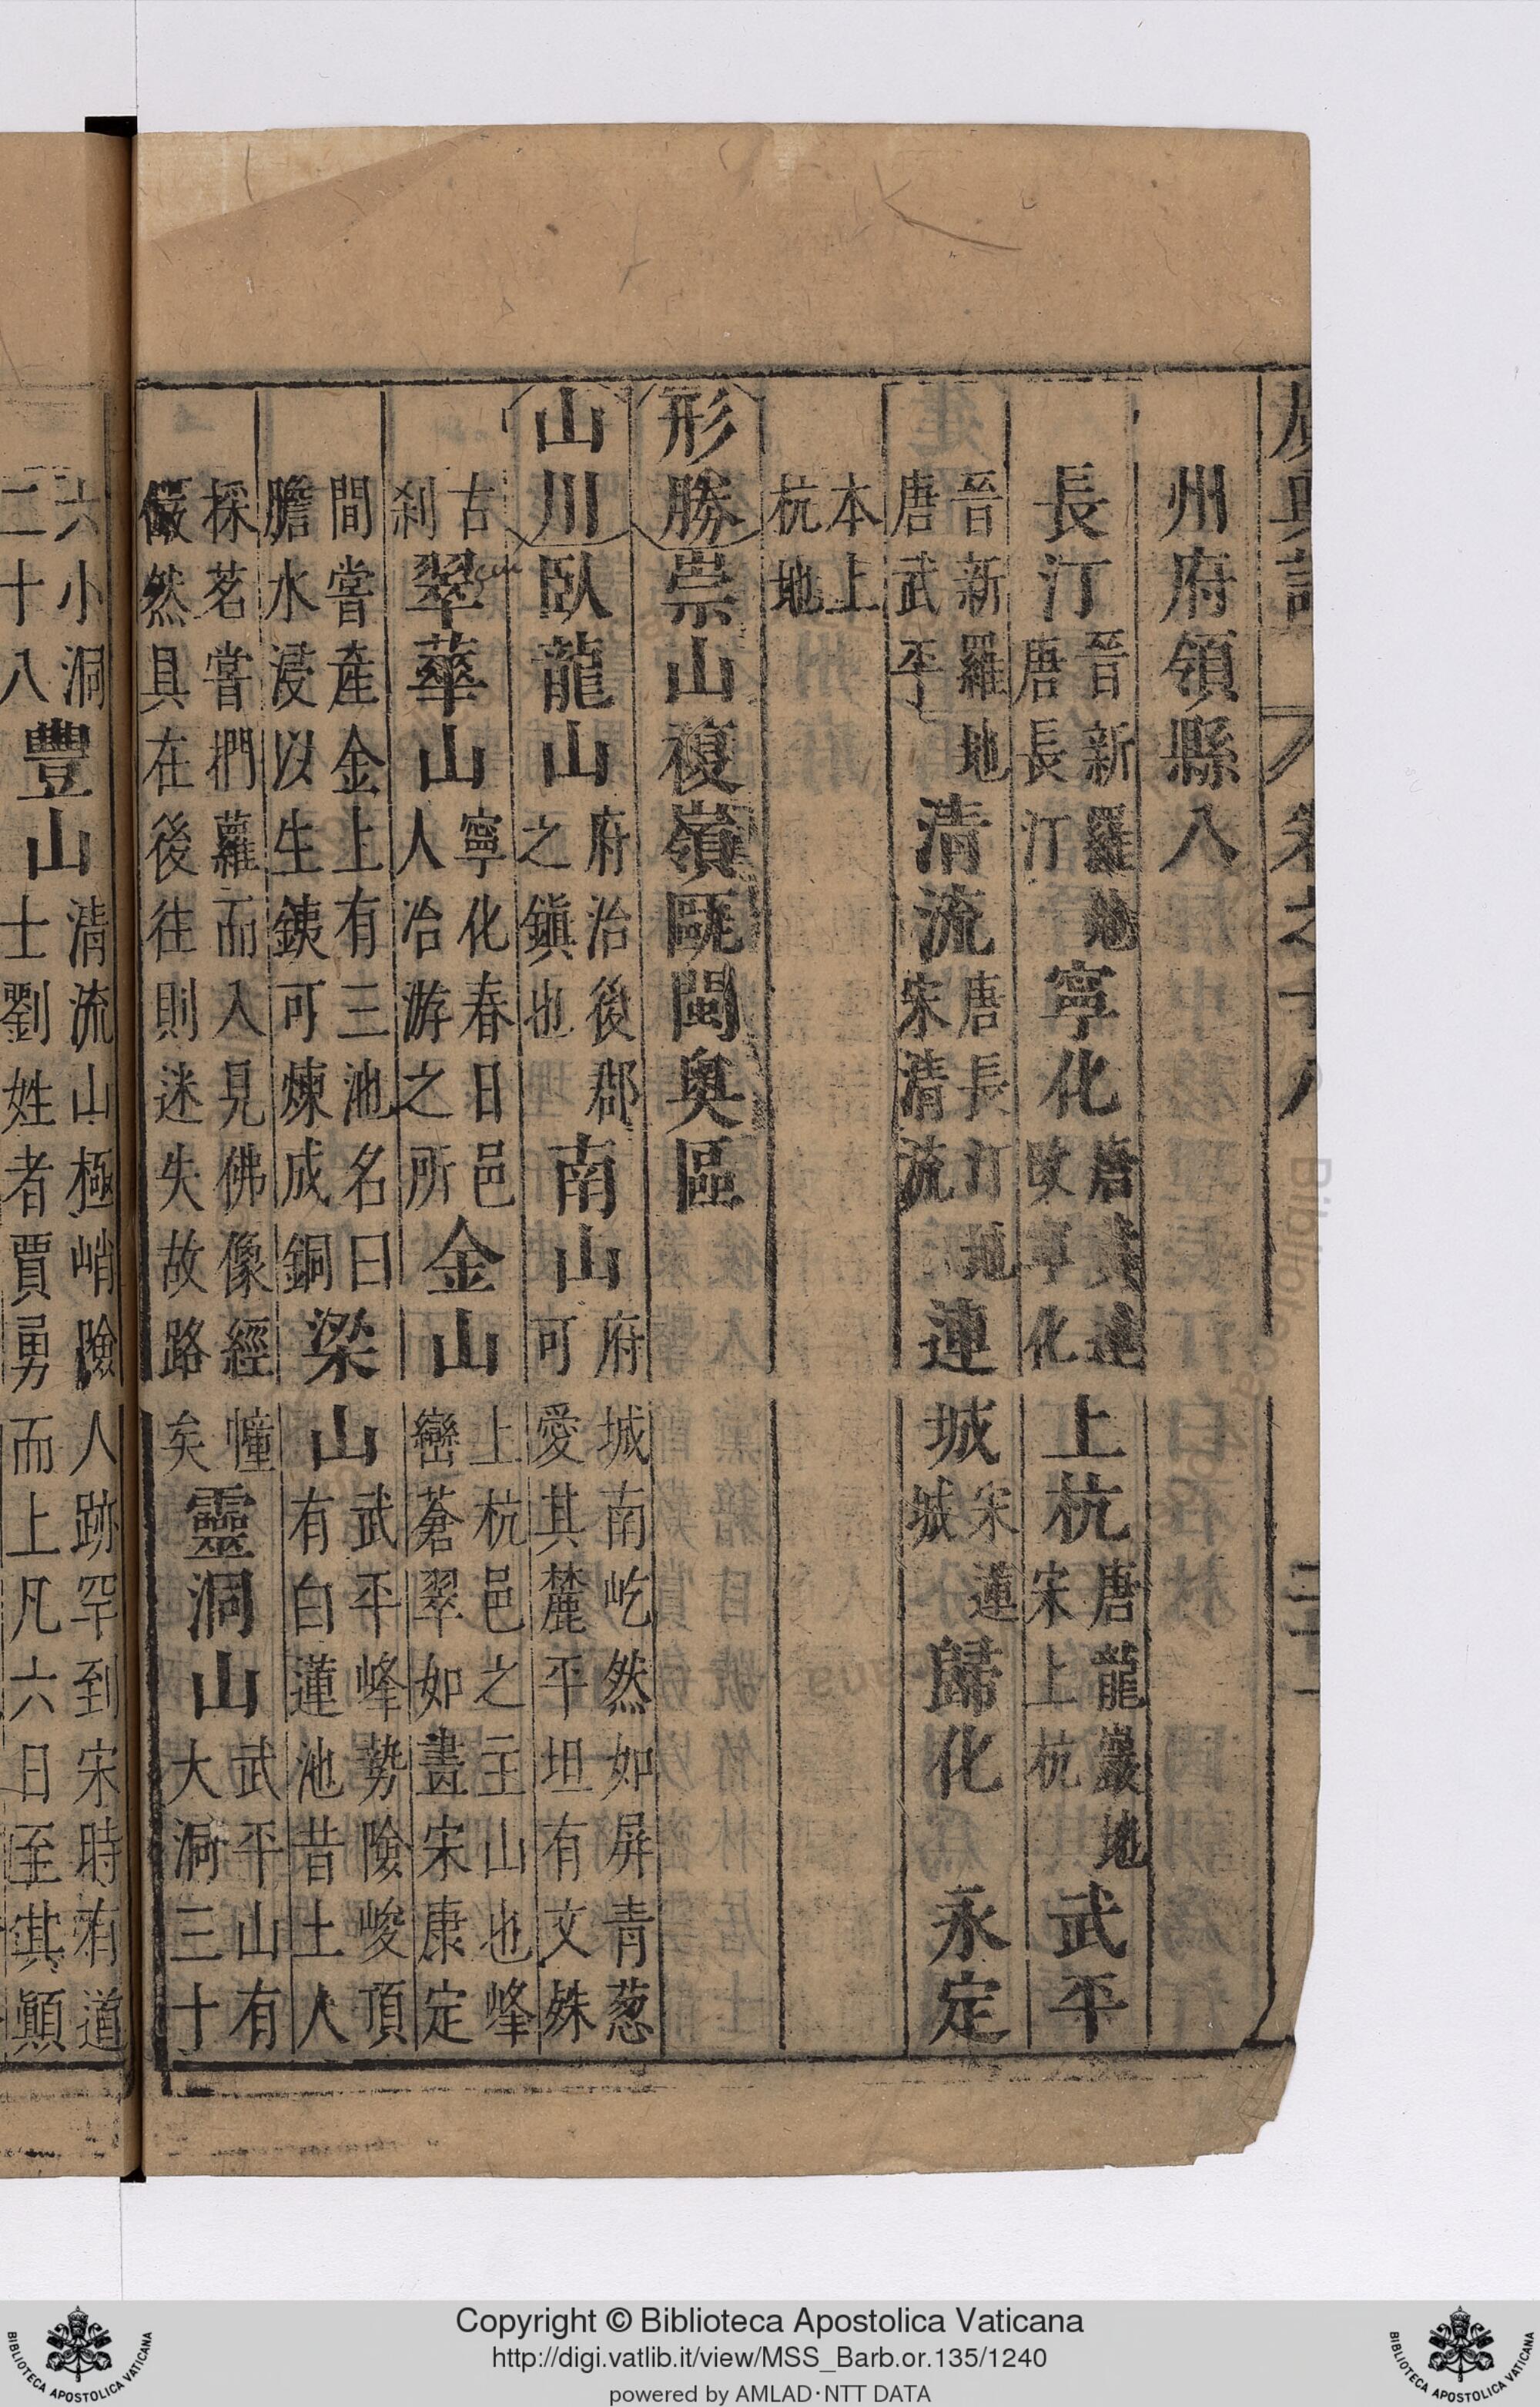 州府領縣八
長汀 晉新羅地 唐長汀 寧化 唐黃連 改寧化 上杭 唐龍巖地 宋上杭 武平
晉新羅地 唐武平 清流 唐長汀地 宋清流 連城 宋蓮城 歸化 永定
本上杭地
形勝 崇山複嶺甌閩奧區
山川 臥龍山 府治後郡之鎮也 南山 府城南屹然如屏青葱可愛其麓平坦有文殊
古刹 翠華山 寧化春日邑人冶游之所 金山 上杭邑之主山也峰巒蒼翠如畫宋康定
間嘗產金上有三池名曰膽水浸以生鐵可煉成銅 梁山 武平峰勢險峻頂有白蓮池昔土人
採茗嘗捫蘿而入見佛像經幢儼然具在後往則迷失故路矣 靈洞山 武平山有大洞三十
六小洞二十八 豐山 清流山極峭險人跡罕到宋時有道士劉姓者賈勇而上凡六日至其顛
Copyright © Biblioteca Apostolica Vaticana
http://digi.vatlib.it/view/MSS_Barb.or.135/1240
powered by AMLAD·NTT DATA
BIBLIOTECA APOSTOLICA VATICANA
BIBLIOTECA APOSTOLICA VATICANA